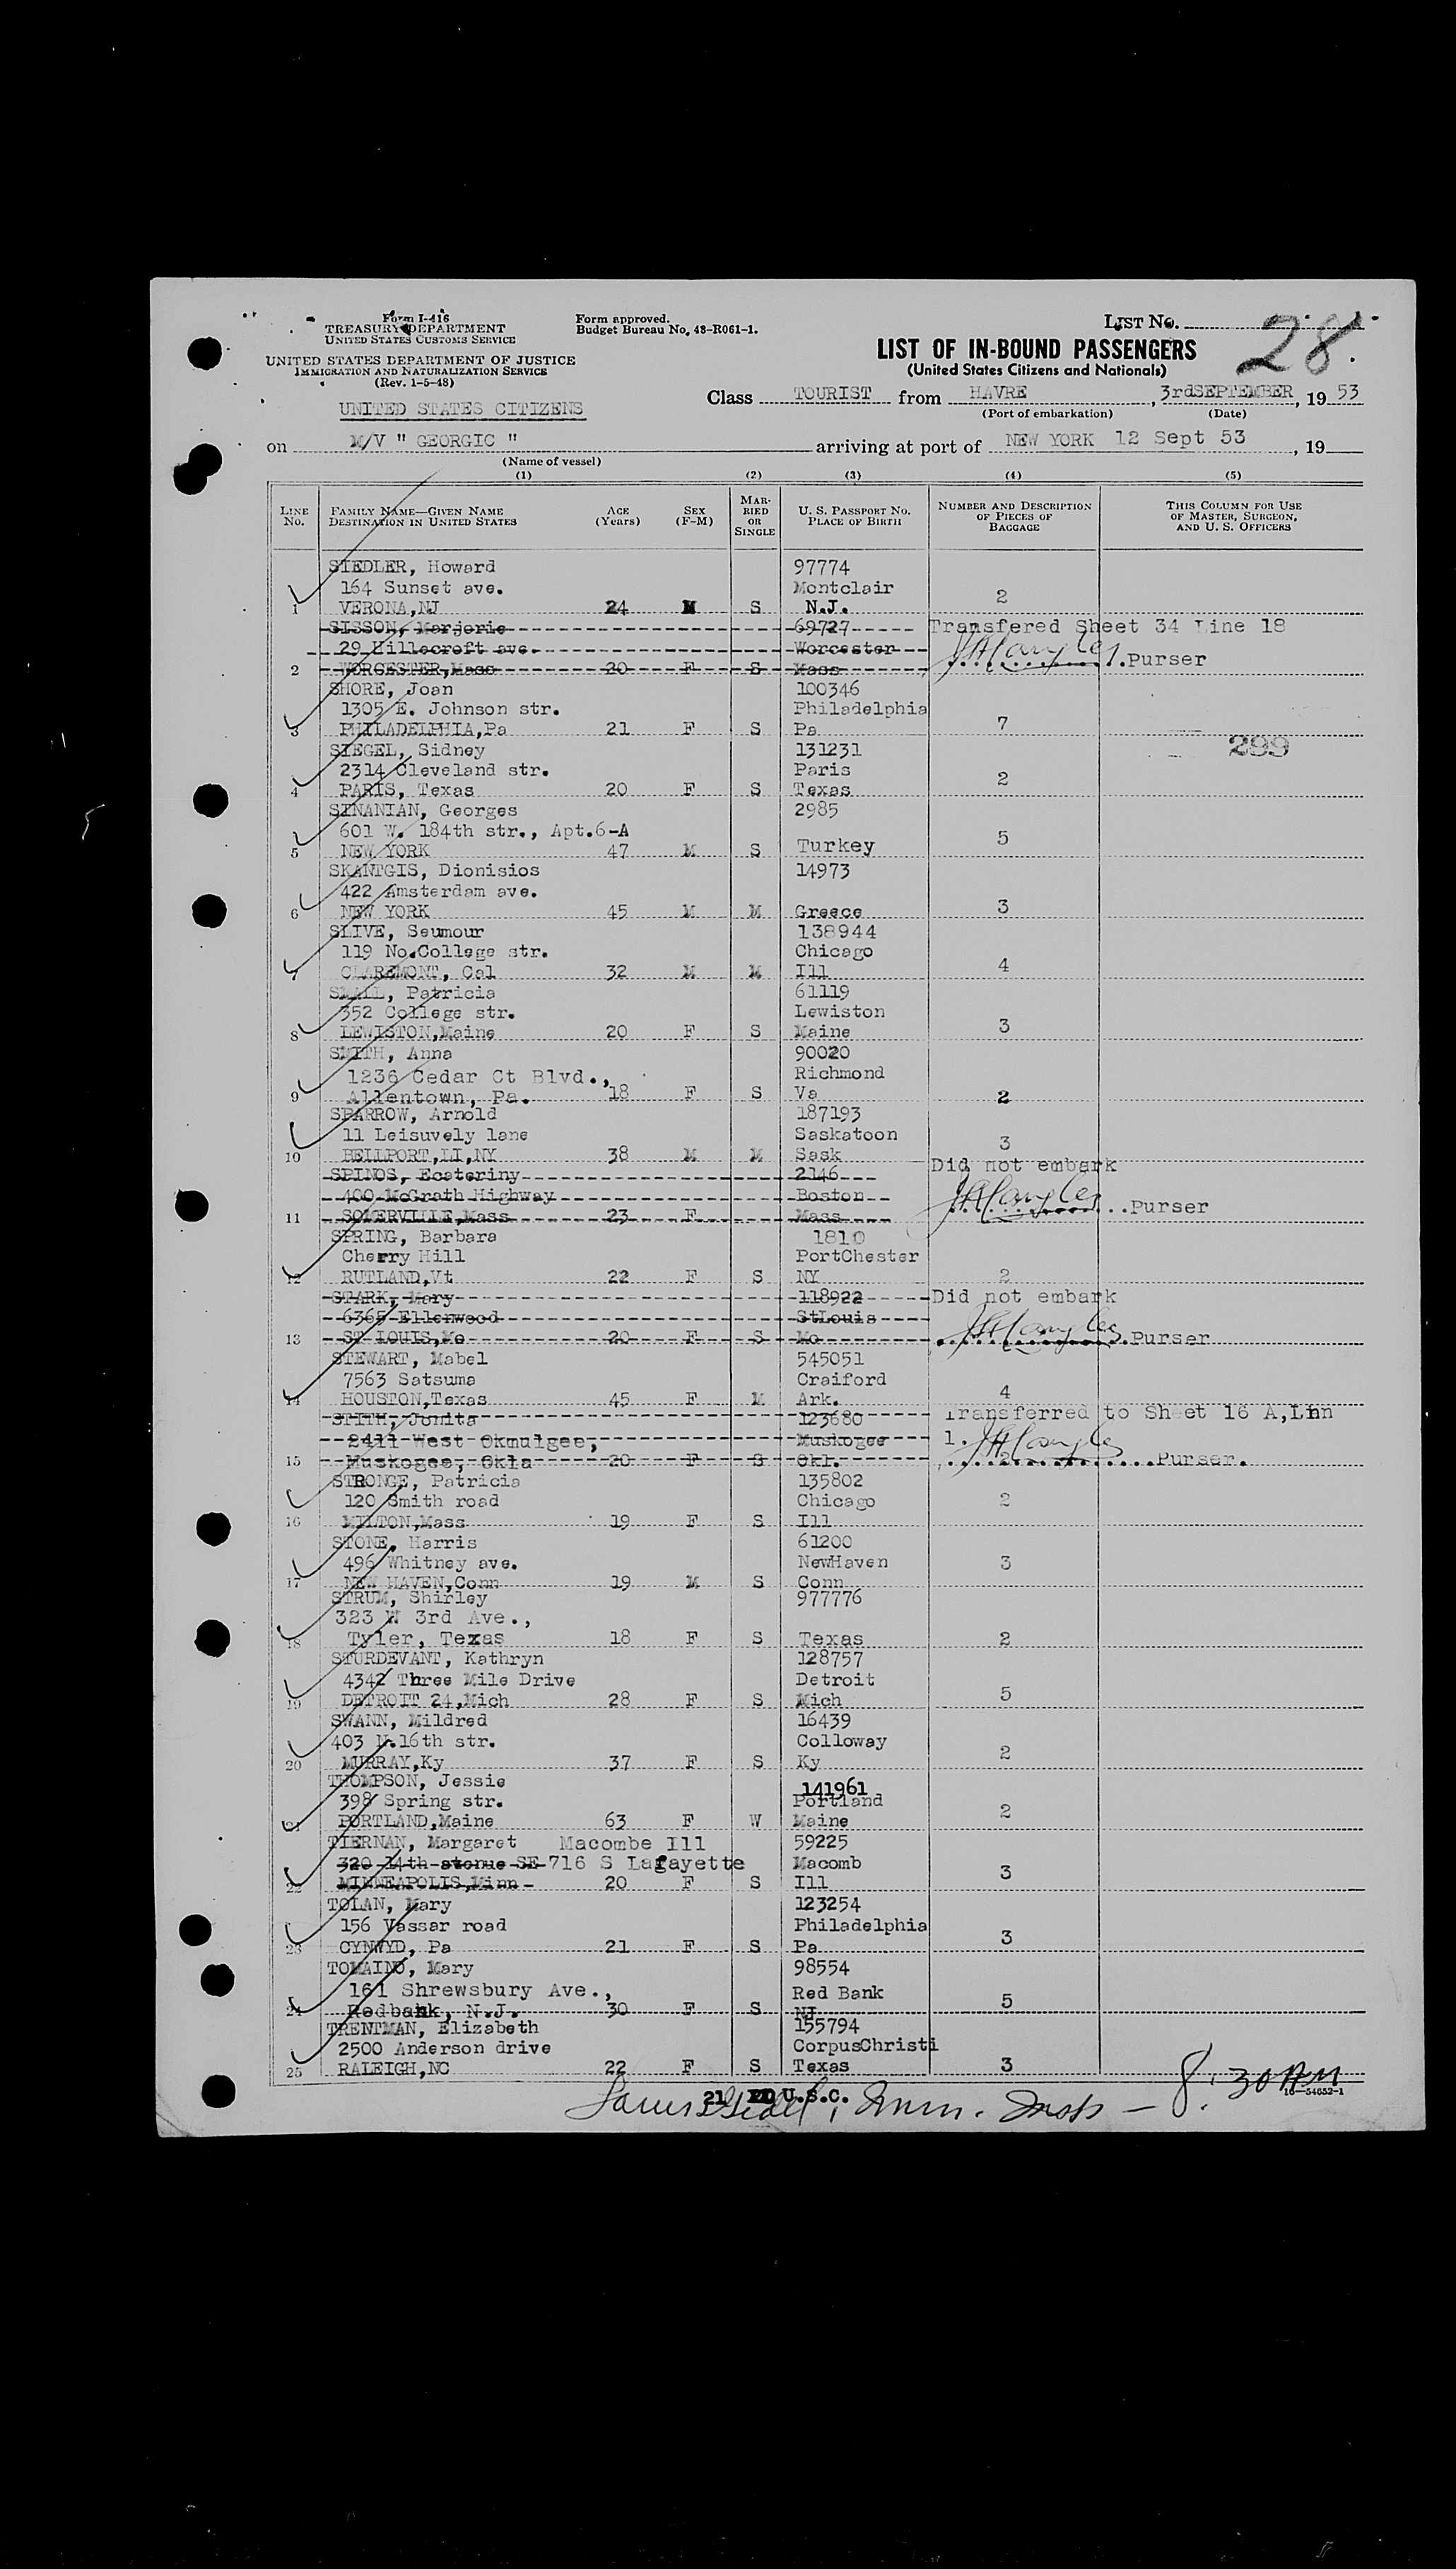 Form I-416
TREASURY DEPARTMENT
UNITED STATES CUSTOMS SERVICE
UNITED STATES DEPARTMENT OF JUSTICE
IMMIGRATION AND NATURALIZATION SERVICE
(Rev. 1-5-48)
Form approved.
Budget Bureau No. 43-R061-1.
LIST NO. 28.
LIST OF IN-BOUND PASSENGERS
(United States Citizens and Nationals)
UNITED STATES CITIZENS
Class TOURIST from HAVRE, 3rdSEPTEMBER, 19 53
(Port of embarkation) (Date)
on M/V " GEORGIC " arriving at port of NEW YORK 12 Sept 53, 19
(Name of vessel)
(1) (2) (3) (4) (5)
LINE No. FAMILY NAME—GIVEN NAME DESTINATION IN UNITED STATES AGE (Years) SEX (F-M) MARRIED OR SINGLE U. S. PASSPORT NO. PLACE OF BIRTH NUMBER AND DESCRIPTION OF PIECES OF BAGGAGE THIS COLUMN FOR USE OF MASTER, SURGEON, AND U. S. OFFICERS
SIEDLER, Howard 97774
164 Sunset ave. Montclair
1 VERONA,NJ 24 M S N.J. 2
SISSON, Marjorie 69727 Transfered Sheet 34 Line 18
29 Hillecroft ave. Worcester
2 WORCESTER,Mass 20 F S Mass Purser
SHORE, Joan 100346
1305 E. Johnson str. Philadelphia
3 PHILADELPHIA,Pa 21 F S Pa 7
SIEGEL, Sidney 131231 299
2314 Cleveland str. Paris
4 PARIS, Texas 20 F S Texas 2
SINANIAN, Georges 2985
601 W. 184th str., Apt.6-A
5 NEW YORK 47 M S Turkey 5
SKANTGIS, Dionisios 14973
422 Amsterdam ave.
6 NEW YORK 45 M M Greece 3
SLIVE, Seumour 138944
119 No.College str. Chicago
7 CLAREMONT, Cal 32 M M Ill 4
SMALL, Patricia 61119
352 College str. Lewiston
8 LEWISTON,Maine 20 F S Maine 3
SMITH, Anna 90020
1236 Cedar Ct Blvd., Richmond
9 Allentown, Pa. 18 F S Va 2
SPARROW, Arnold 187193
11 Leisuvely lane Saskatoon
10 BELLPORT,LI,NY 38 M M Sask 3
SPINOS, Ecateriny 2146 Did not embark
400 McGrath Highway Boston
11 SOMERVILLE,Mass 23 F Mass Purser
SPRING, Barbara 1810
Cherry Hill PortChester
12 RUTLAND,Vt 22 F S NY 2
STARK, Mary 118922 Did not embark
6365 Ellenwood StLouis
13 ST LOUIS,Mo 20 F S Mo Purser
STEWART, Mabel 545051
7563 Satsuma Craiford
14 HOUSTON,Texas 45 F M Ark. 4
STITH, Junita 123680 Transferred to Sheet 16 A,Linn
2411 West Okmulgee, Muskogee 1.
15 Muskogee, Okla 20 F S Okl. 2 Purser.
STRONGE, Patricia 135802
120 Smith road Chicago
16 MILTON,Mass 19 F S Ill 2
STONE, Harris 61200
496 Whitney ave. NewHaven
17 NEW HAVEN,Conn 19 M S Conn 3
STRUM, Shirley 977776
323 W 3rd Ave.,
18 Tyler, Texas 18 F S Texas 2
STURDEVANT, Kathryn 128757
4342 Three Mile Drive Detroit
19 DETROIT 24,Mich 28 F S Mich 5
SWANN, Mildred 16439
403 N.16th str. Colloway
20 MURRAY,Ky 37 F S Ky 2
THOMPSON, Jessie 141961
398 Spring str. Portland
21 PORTLAND,Maine 63 F W Maine 2
TIERNAN, Margaret Macombe Ill 59225
320 14th avenue SE 716 S Lafayette Macomb
22 MINNEAPOLIS,Minn 20 F S Ill 3
TOLAN, Mary 123254
156 Vassar road Philadelphia
23 CYNWYD, Pa 21 F S Pa 3
TOMAINO, Mary 98554
161 Shrewsbury Ave., Red Bank
24 Redbank, N.J. 30 F S NJ 5
TRENTMAN, Elizabeth 155794
2500 Anderson drive CorpusChristi
25 RALEIGH,NC 22 F S Texas 3
21 U.S.C.
Imm. Insp — 8:30 AM
16—54652-1